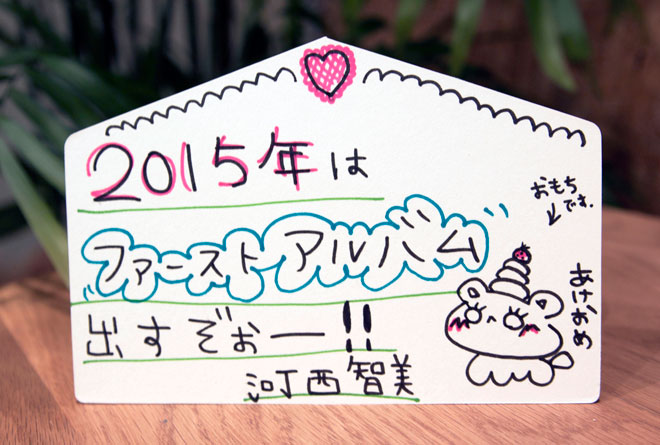 2015年は
ファーストアルバム
出すぞぉー!!
河西智美
おもち
です。
あけおめ